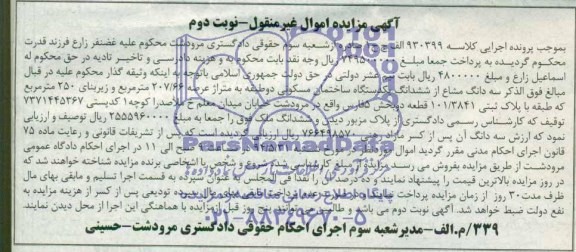 آگهی مزایده اموال غیرمنقول-نوبت دوم
بموجب پرونده اجرایی کلاسه ۹۳۰۳۹۹ الف ج ح شعبه سوم حقوقی دادگستری مرودشت محکوم علیه غضنفر زارع فرزند قدرت
محکوم گردیده به پرداخت جمعا مبلغ ریال وجه نقد بابت محکوم به و هزینه دادرسی و تاخیر تادیه در حق محکوم له
اسماعیل زارع و مبلغ ۴۸۰۰۰۰۰ ریال بابت نیم عشر دولتی در حق دولت جمهوری اسلامی باتوجه به اینکه وثیقه گذار محکوم علیه در قبال
مبالغ فوق الذکر سه دانگ مشاع از ششدانگ یکدستگاه ساختمان مسکونی دوطبقه به متراژ عرصه ۲۰۷/۶۶ مترمربع و زیربنای ۲۵۰ مترمربع
که طبقه با پلاک ثبتی ۱۰۱/۳۸۴۱ قطعه دو بخش ۵ فارس واقع در مرودشت خیابان میدان معلم خ کوچه ۱ کدپستی ۷۳۷۱۴۴۵۳۶۷
توقیف که کارشناس رسمی دادگستری از پلاک مزبور دیدن و ششدانگ ملک فوق را جمعا به مبلغ ۲۵۵۵۹۶۰۰۰۰ ریال توصیف و ارزیابی
نمود که ارزش سه دانگ آن پس از کسر مازاد ریال ارزیابی گردیده است که پس از تشریفات قانونی و رعایت ماده ۷۵
قانون اجرای احکام مدنی مقرر گردید اموال صبح الی ۱۱ در اجرای احکام دادگاه عمومی
مرودشت از طریق مزایده بفروش می رسد مزایده از مبلغ کارشناسی شده شروع و شخص یا اشخاصی برنده مزایده شناخته خواهند شد که
در روز مزایده بالاترین قیمت را پیشنهاد نمایند و ده درصد آن را نقدا فی المجلس به عنوان سپرده به قسمت اجرا تسلیم و مابقی بهای مال
ظرف مدت ۳۰ روز از زمان مزایده پرداخت تودیعی پس از کسر از هزینه مزایده به
نفع دولت ضبط خواهد شد. آگهی نوبت دوم می باشد و طالبین می توانند پنج روز قبل از مزایده با هماهنگی این اجرا از محل دیدن نمایند.
۳۳۹/م.الف-مدیرشعبه سوم اجرای احکام حقوقی دادگستری مرودشت-حسینی
ParsNamadData
پایگاه اطلاع رسانی مناقصه مزایده
۰۲۱-۸۸۳۴۹۶۷۰-۵